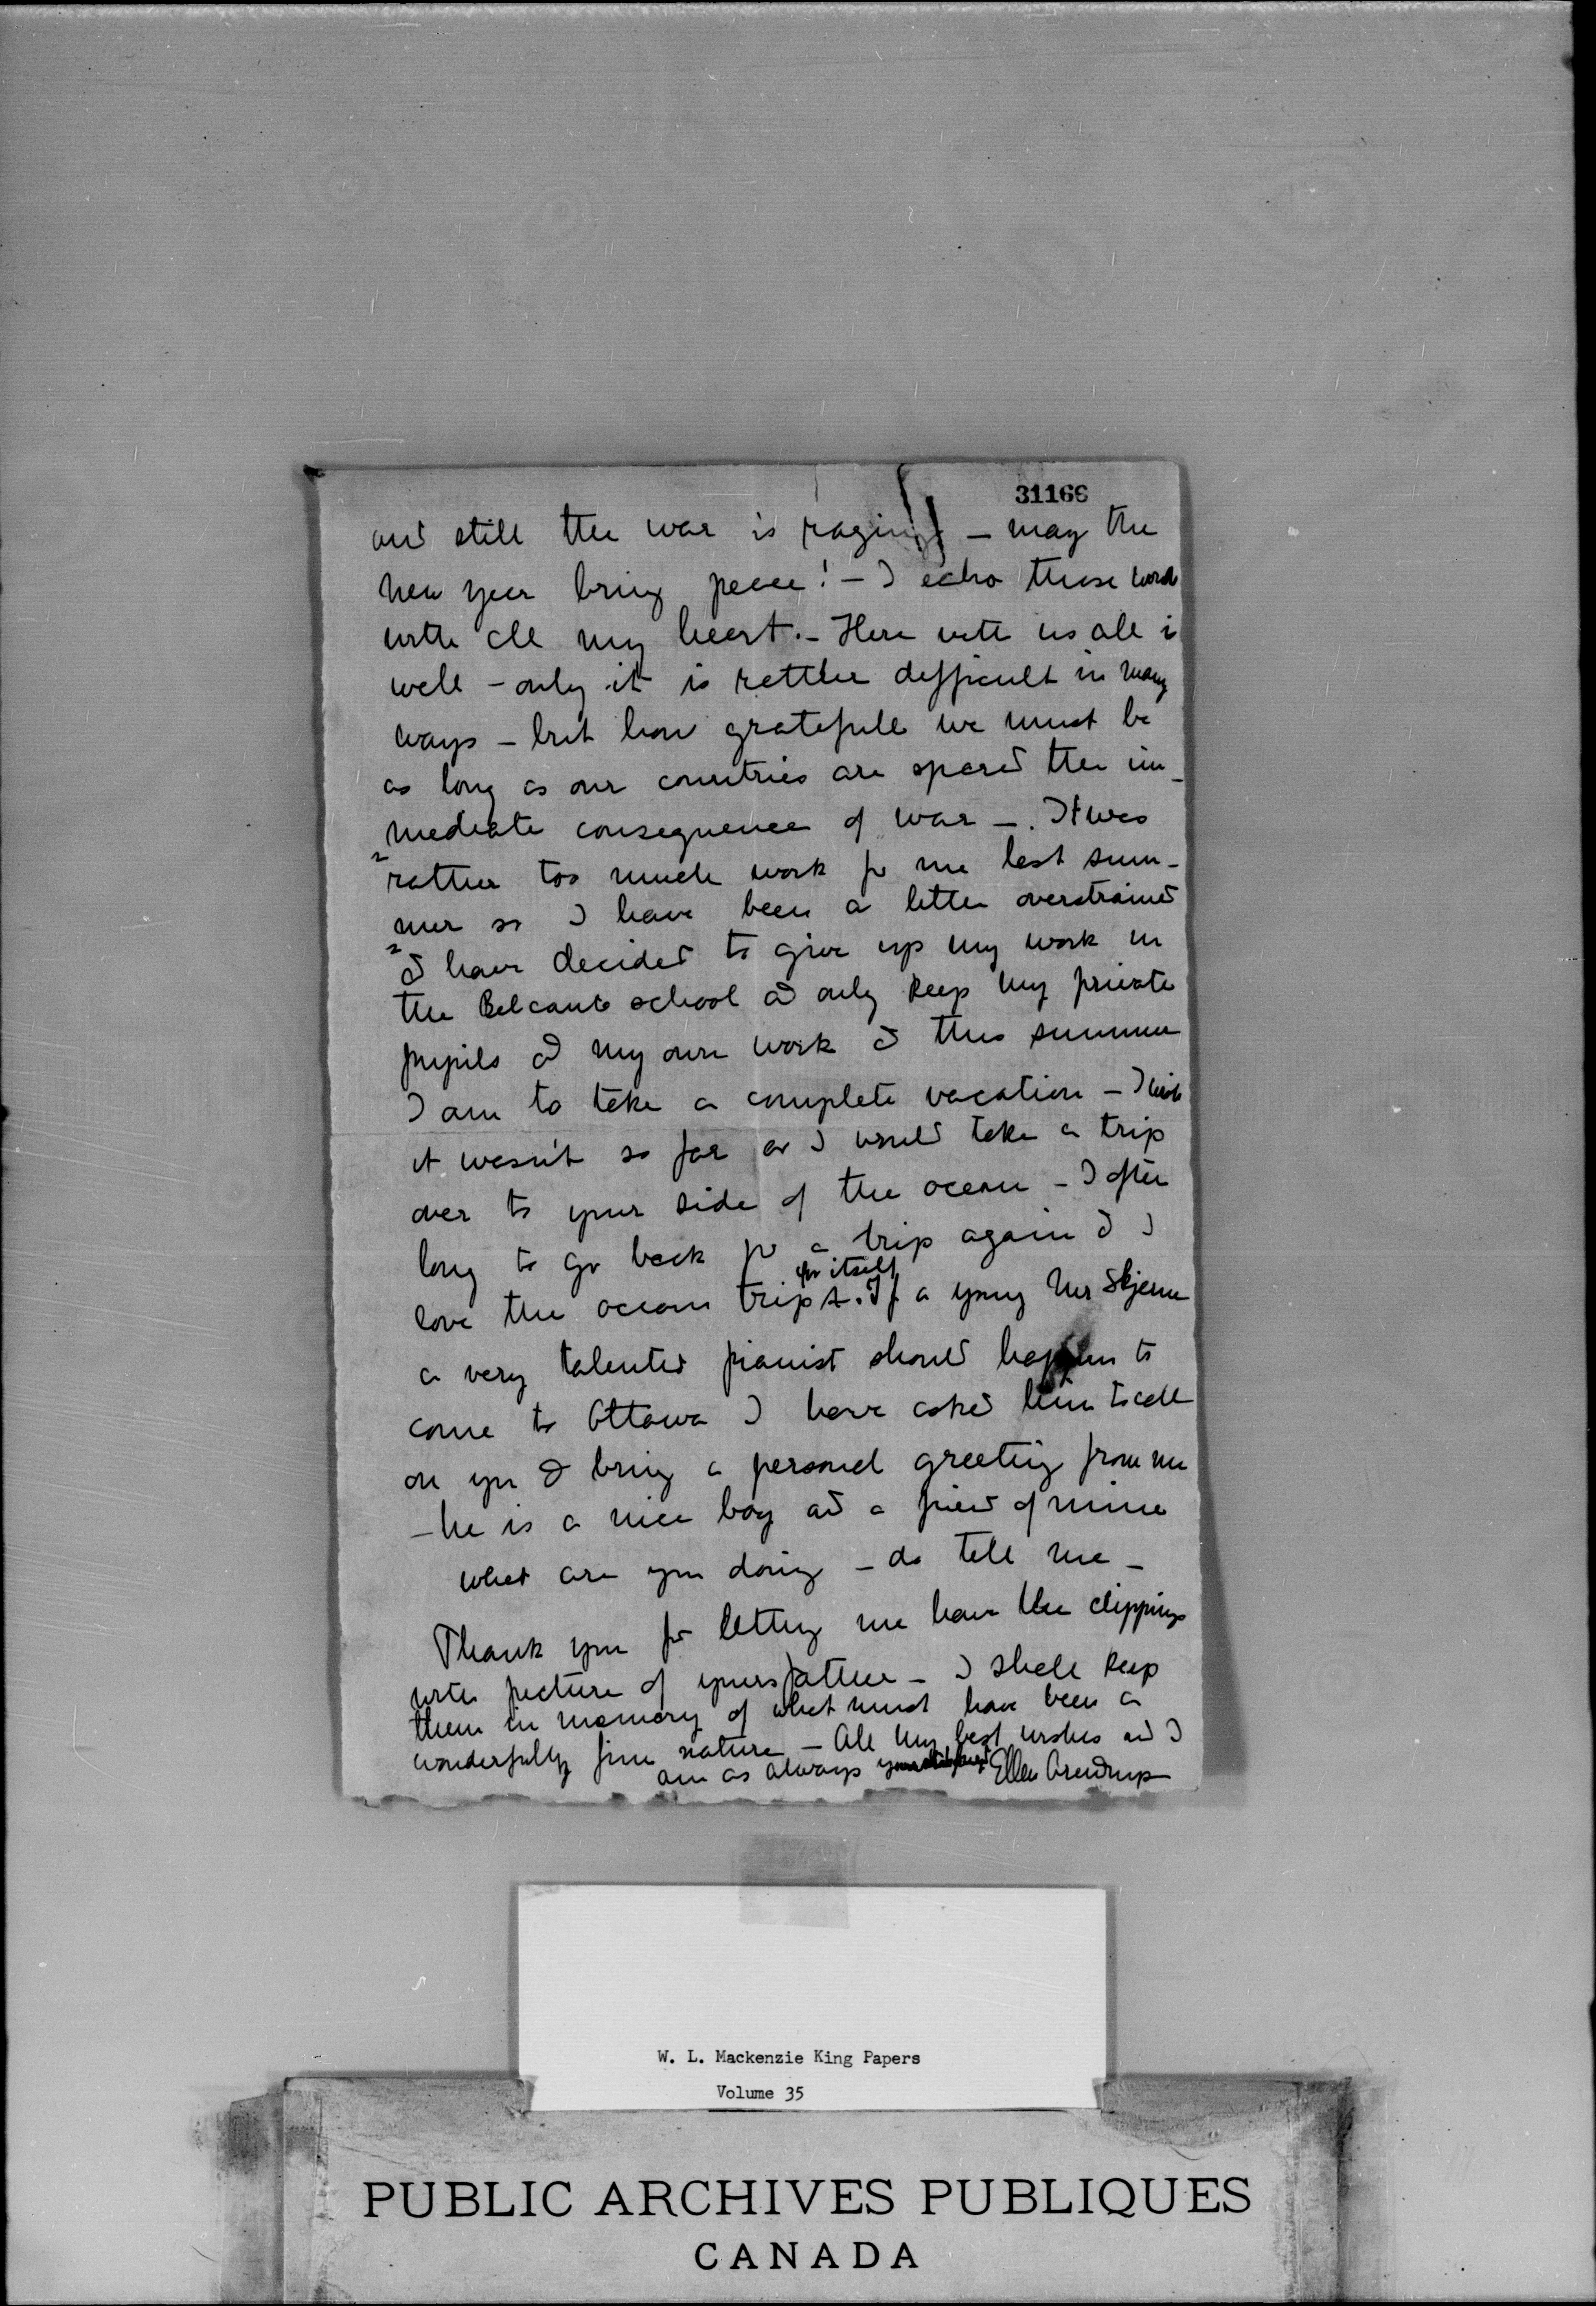 31166
and still the war is raging - may the
new year bring peace! - I echo those words
with all my heart. - Here with us all is
well - only it is rather difficult in many
ways - but how gratefull we must be
as long as our countries are spared the im-
mediate consequence of war -. It was
rather too much work for me last sum-
mer so I have been a little overstrained
I have decided to give up my work in
the Belcanto school and only keep my private
pupils and my own work & this summer
I am to take a complete vacation - I wish
it wasn't so far or I would take a trip
over to your side of the ocean - I often
long to go back for a trip again & I
for itself
love the ocean trip. If a young Mr Skjerne
a very talented pianist should happen to
come to Ottawa I have asked him to call
on you & bring a personel greeting from me
- he is a nice boy and a friend of mine
what are you doing - do tell me -
Thank you for letting me have the clippings
with picture of yours father - I shall keep
them in memory of what must have been a
wonderfully fine nature - All my best wishes and I
am as always Ellen Arendrup
W. L. Mackenzie King Papers
Volume 35
PUBLIC ARCHIVES PUBLIQUES
CANADA